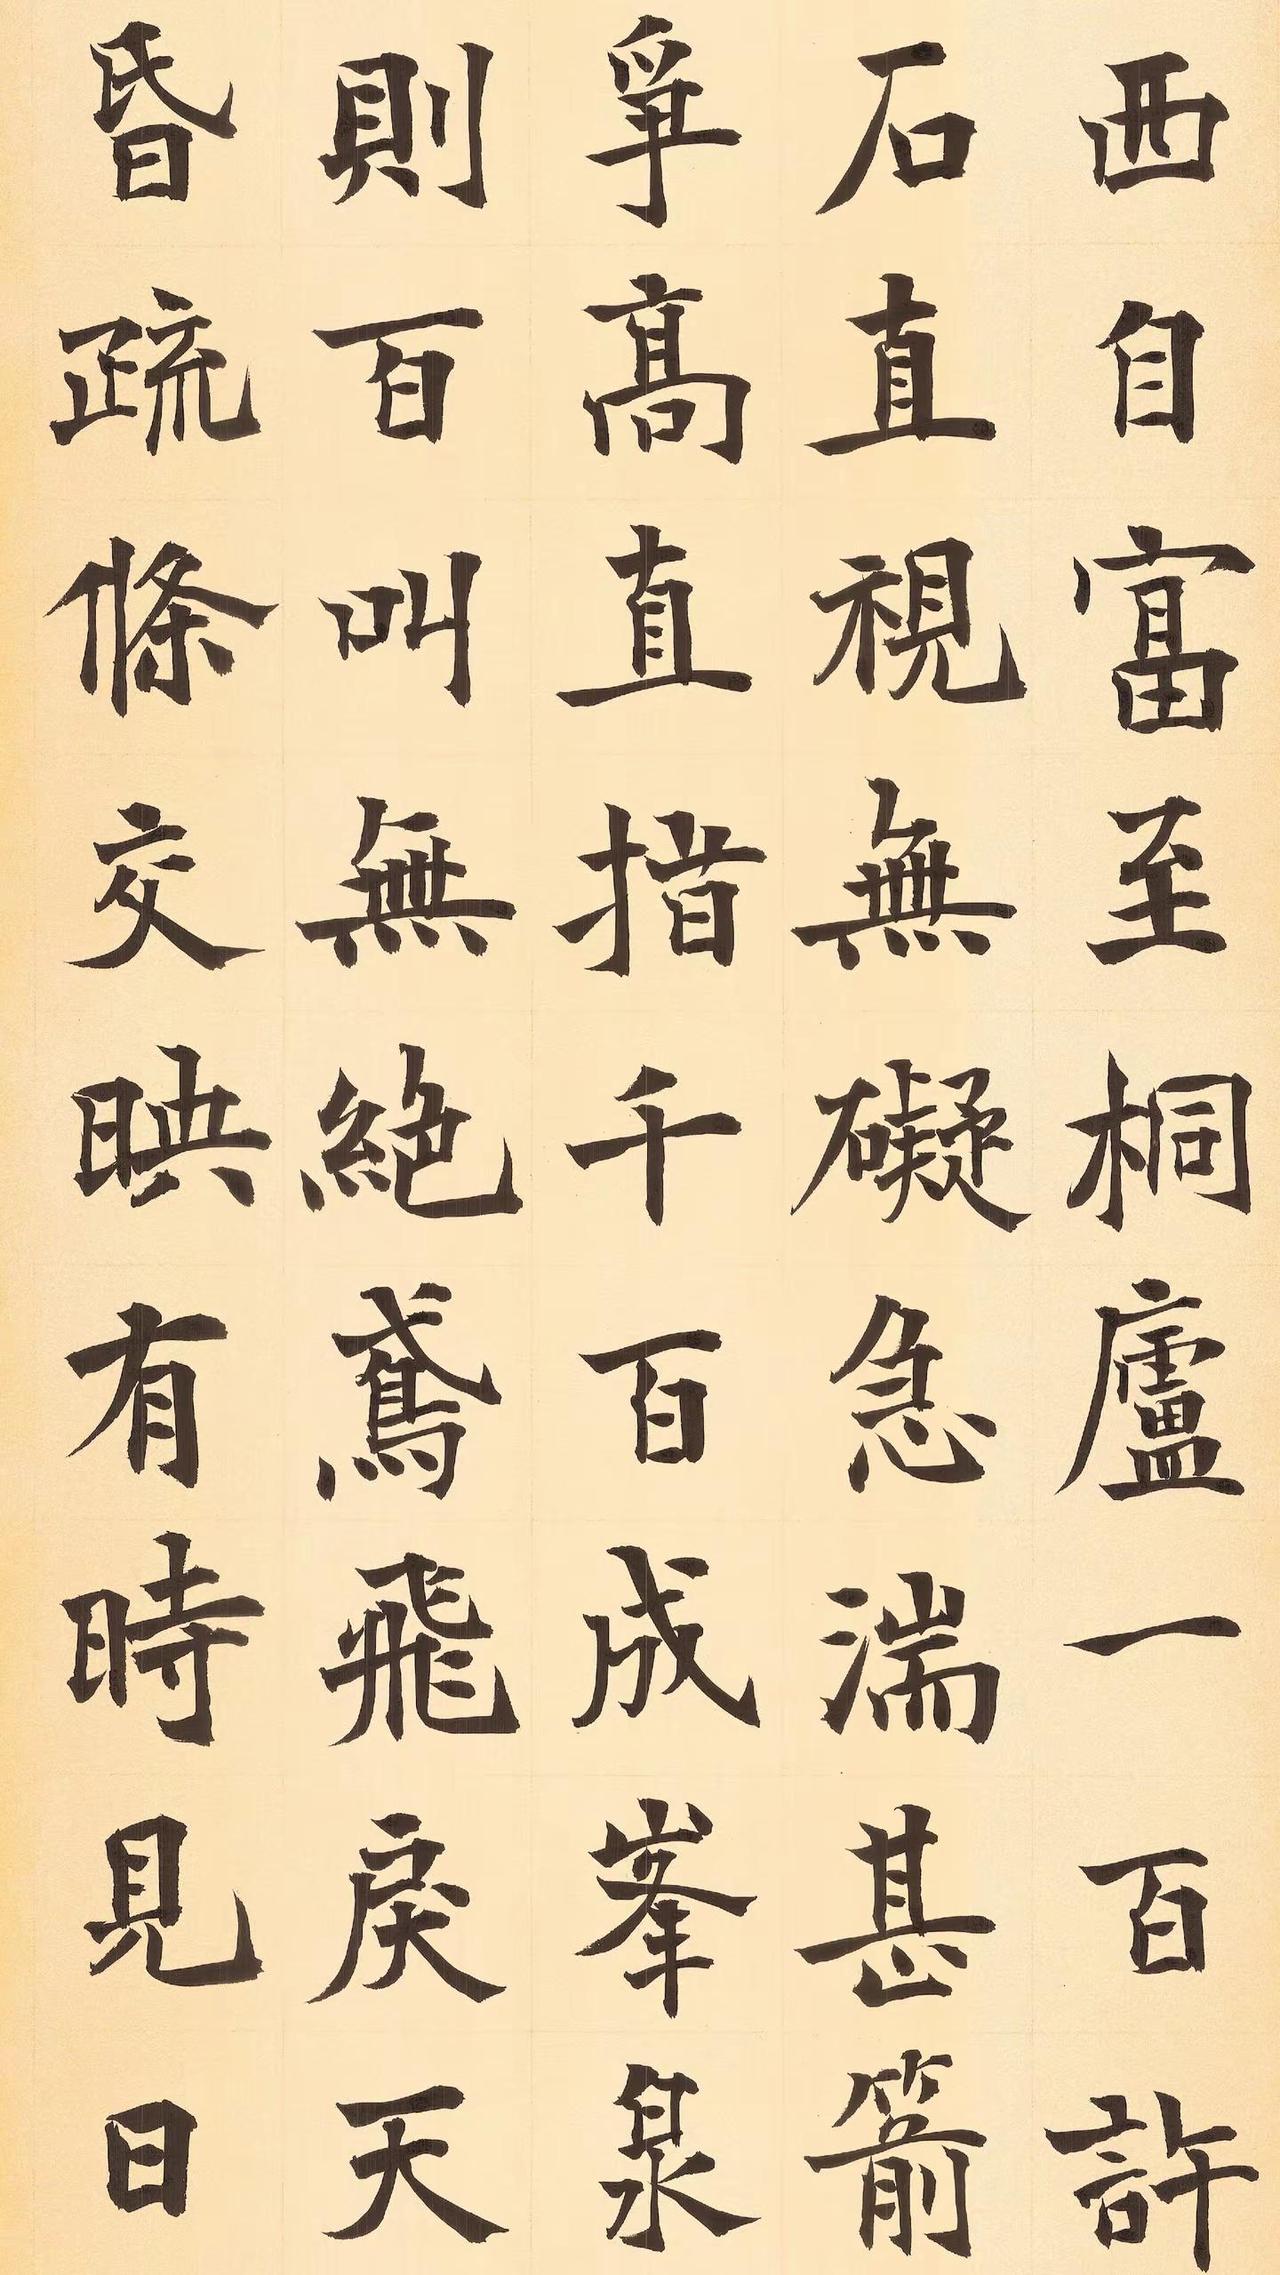 西自富至桐廬一百許
石直視無礙急湍甚箭
爭高直指千百成峯泉
則百叫無絕鳶飛戾天
昏疏條交映有時見日